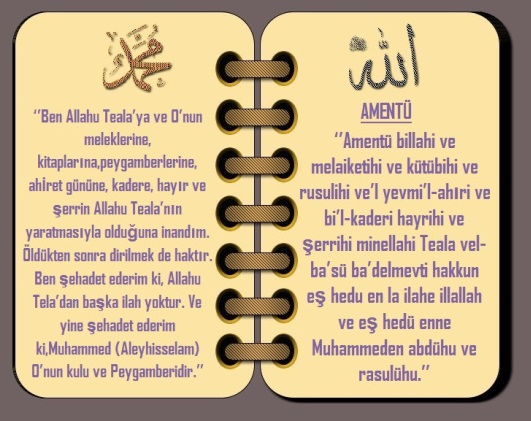 محمد
"Ben Allahu Teala'ya ve O'nun
meleklerine,
kitaplarına,peygamberlerine,
ahiret gününe, kadere, hayır ve
şerrin Allahu Teala'nın
yaratmasıyla olduğuna inandım.
Öldükten sonra dirilmek de haktır.
Ben şehadet ederim ki, Allahu
Tela'dan başka ilah yoktur. Ve
yine şehadet ederim
ki,Muhammed (Aleyhisselam)
O'nun kulu ve Peygamberidir."
الله
AMENTÜ
"Amentü billahi ve
melaiketihi ve kütübihi ve
rusulihi ve'l yevmi'l-ahıri ve
bi'l-kaderi hayrihi ve
şerrihi minellahi Teala vel-
ba'sü ba'delmevti hakkun
eş hedu en la ilahe illallah
ve eş hedü enne
Muhammeden abdühu ve
rasulühu."